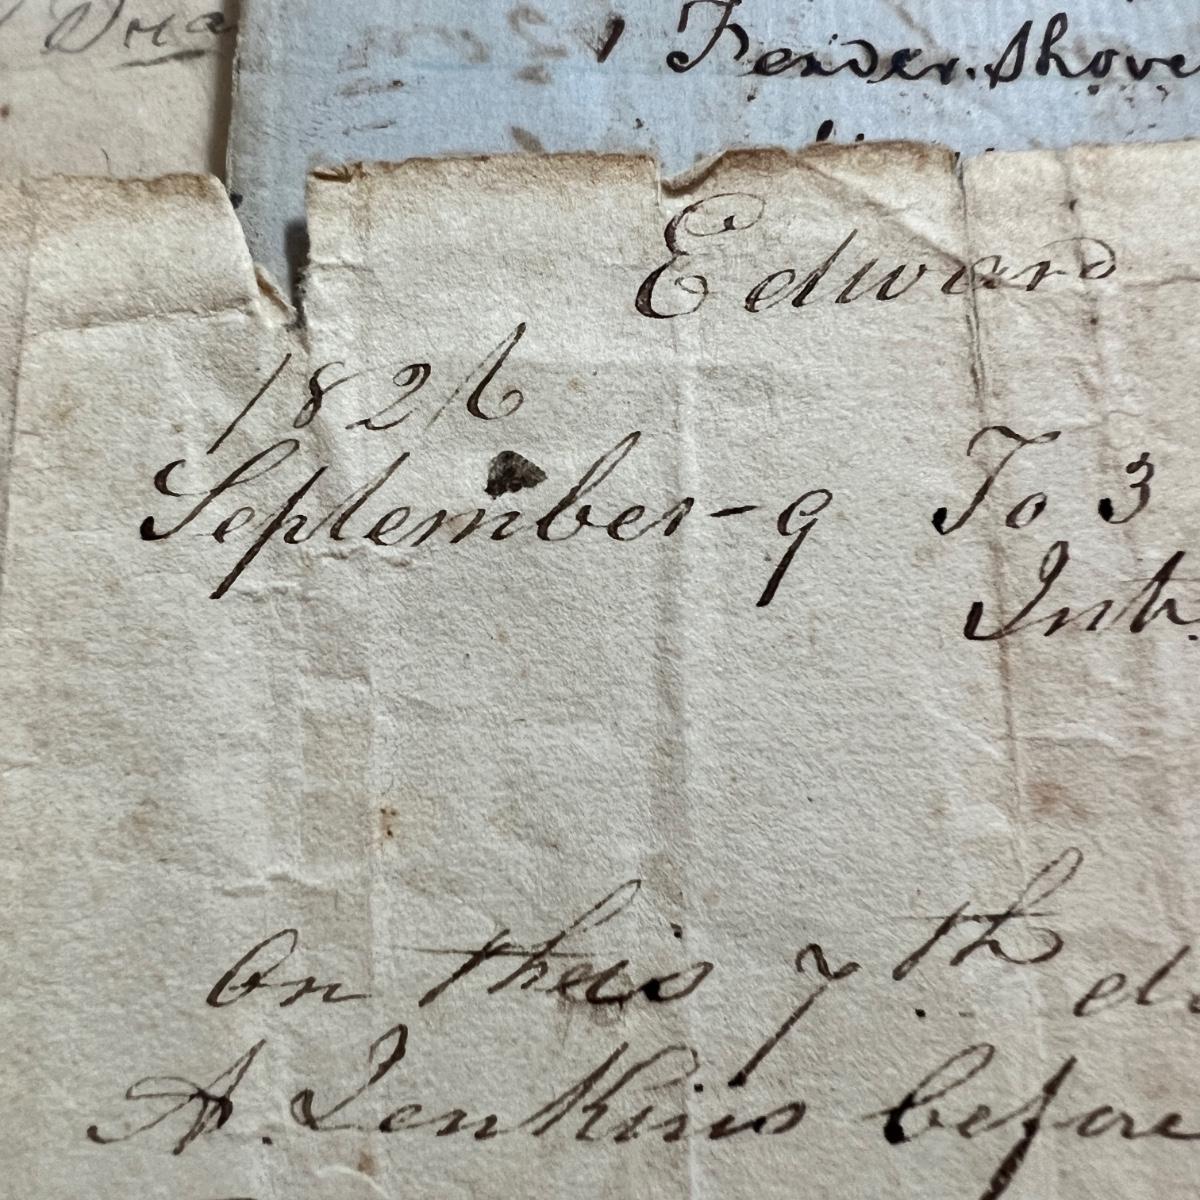 1 Fender. Shove
Edward
1826
September - 9 To 3
Int
On this 7th. da
A. Jenkins before